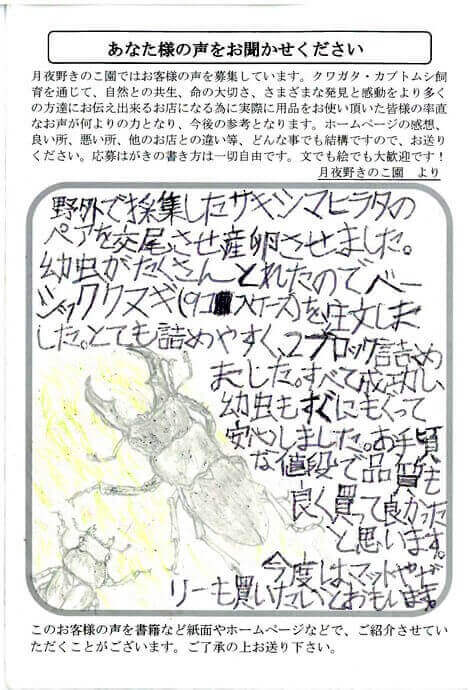 あなた様の声をお聞かせください
月夜野きのこ園ではお客様の声を募集しています。クワガタ・カブトムシ飼
育を通じて、自然との共生、命の大切さ、さまざまな発見と感動をより多く
の方達にお伝え出来るお店になる為に実際に用品をお使い頂いた皆様の率直
なお声が何よりの力となり、今後の参考となります。ホームページの感想、
良い所、悪い所、他のお店との違い等、どんな事でも結構ですので、お送り
ください。応募はがきの書き方は一切自由です。文でも絵でも大歓迎です！
月夜野きのこ園　より
野外で採集したサキシマヒラタの
ペアを交尾させ産卵させました。
幼虫がたくさんとれたのでベー
シッククヌギ(9コ入ケース)を注文しま
した。とても詰めやすく、2ブロック詰め
ました。すべて成功し、
幼虫もすぐにもぐって
安心しました。お手頃
な値段で品質も
良く買って良かった
と思います。
今度はマットやゼ
リーも買いたいとおもいます。
このお客様の声を書籍など紙面やホームページなどで、ご紹介させてい
ただくことがございます。ご了承の上お送り下さい。